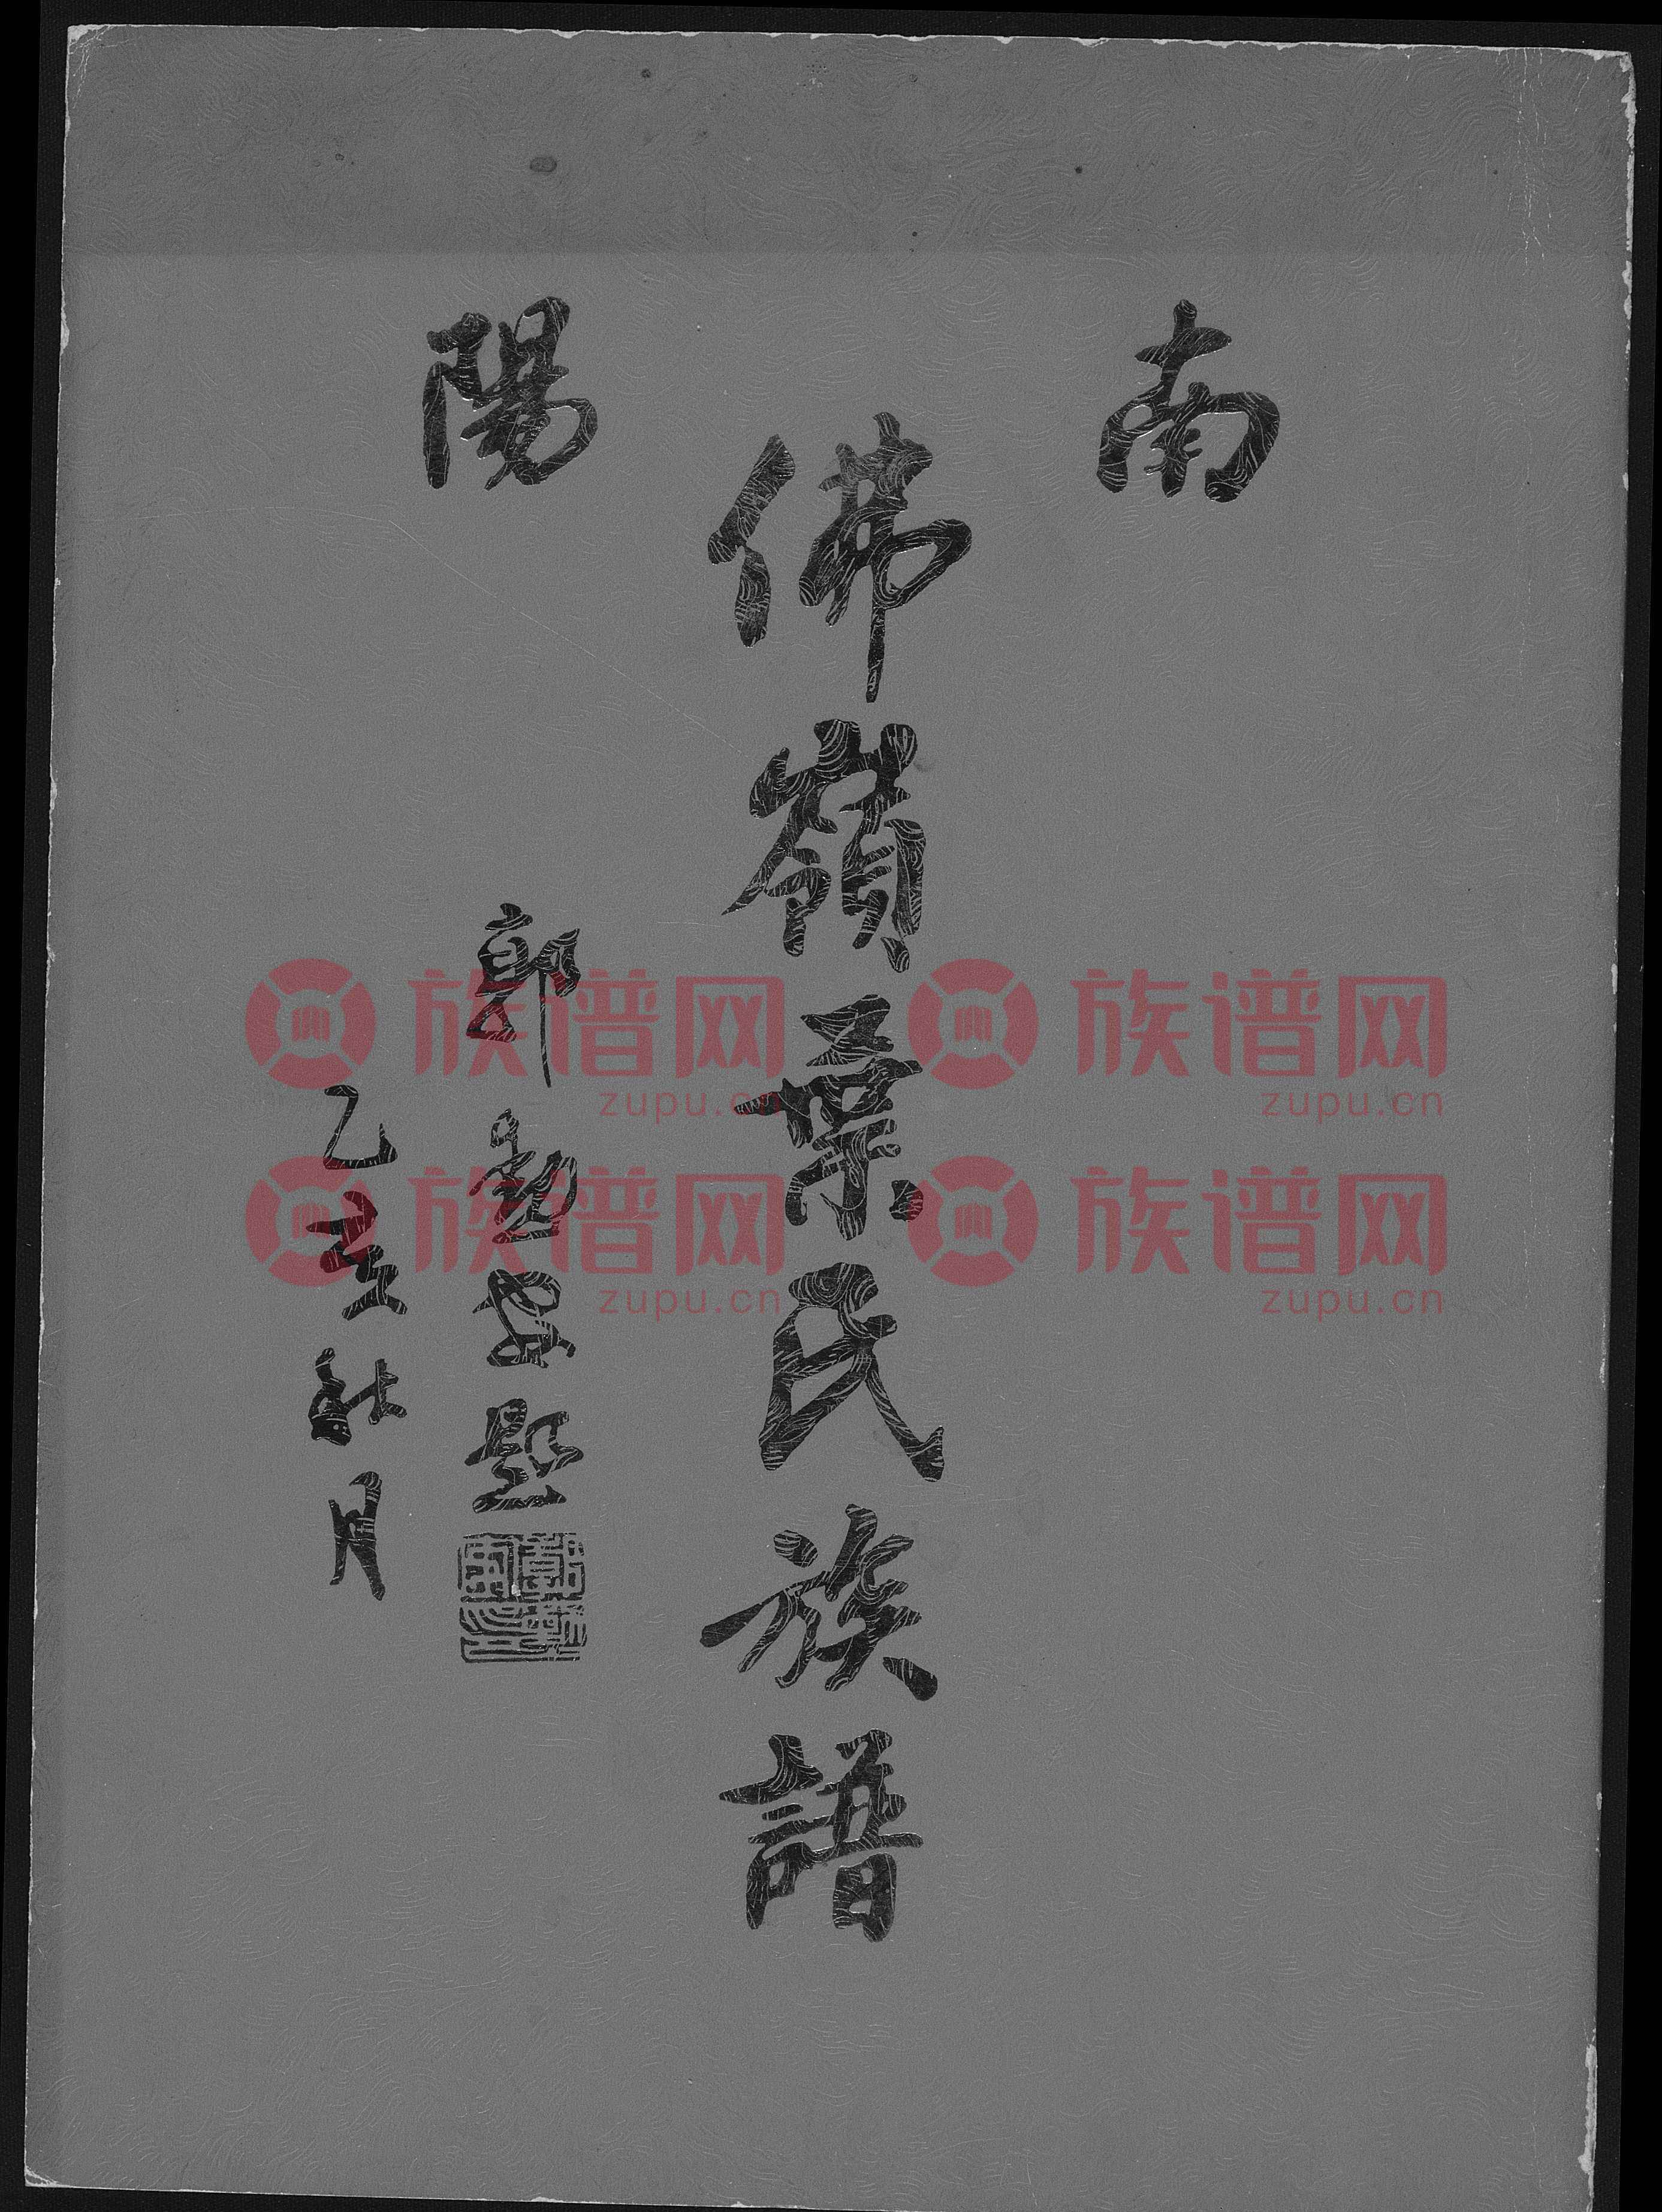 南陽
佛嶺葉氏族譜
郭題
乙亥秋月
族谱网 族谱网
zupu.cn zupu.cn
族谱网 族谱网
zupu.cn zupu.cn